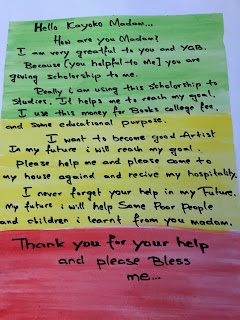 Hello Kayoko Madam...
How are you Madam?
I am very greatful to you and YGB.
Because [you helpful to me] you are
giving scholorship to me.
Really i am using this scholorship to
Studies. It helps me to reach my goal.
I use this money for Books college fee.
and Some educational purpose.
I want to become good Artist
In my future i will reach my goal.
Please help me and please come to
my house againd and recive my hospitality.
I never forget your help in my Future.
My future i will help Some Poor People
and children i learnt from you madam.
Thank you for your help
and please Bless
me...